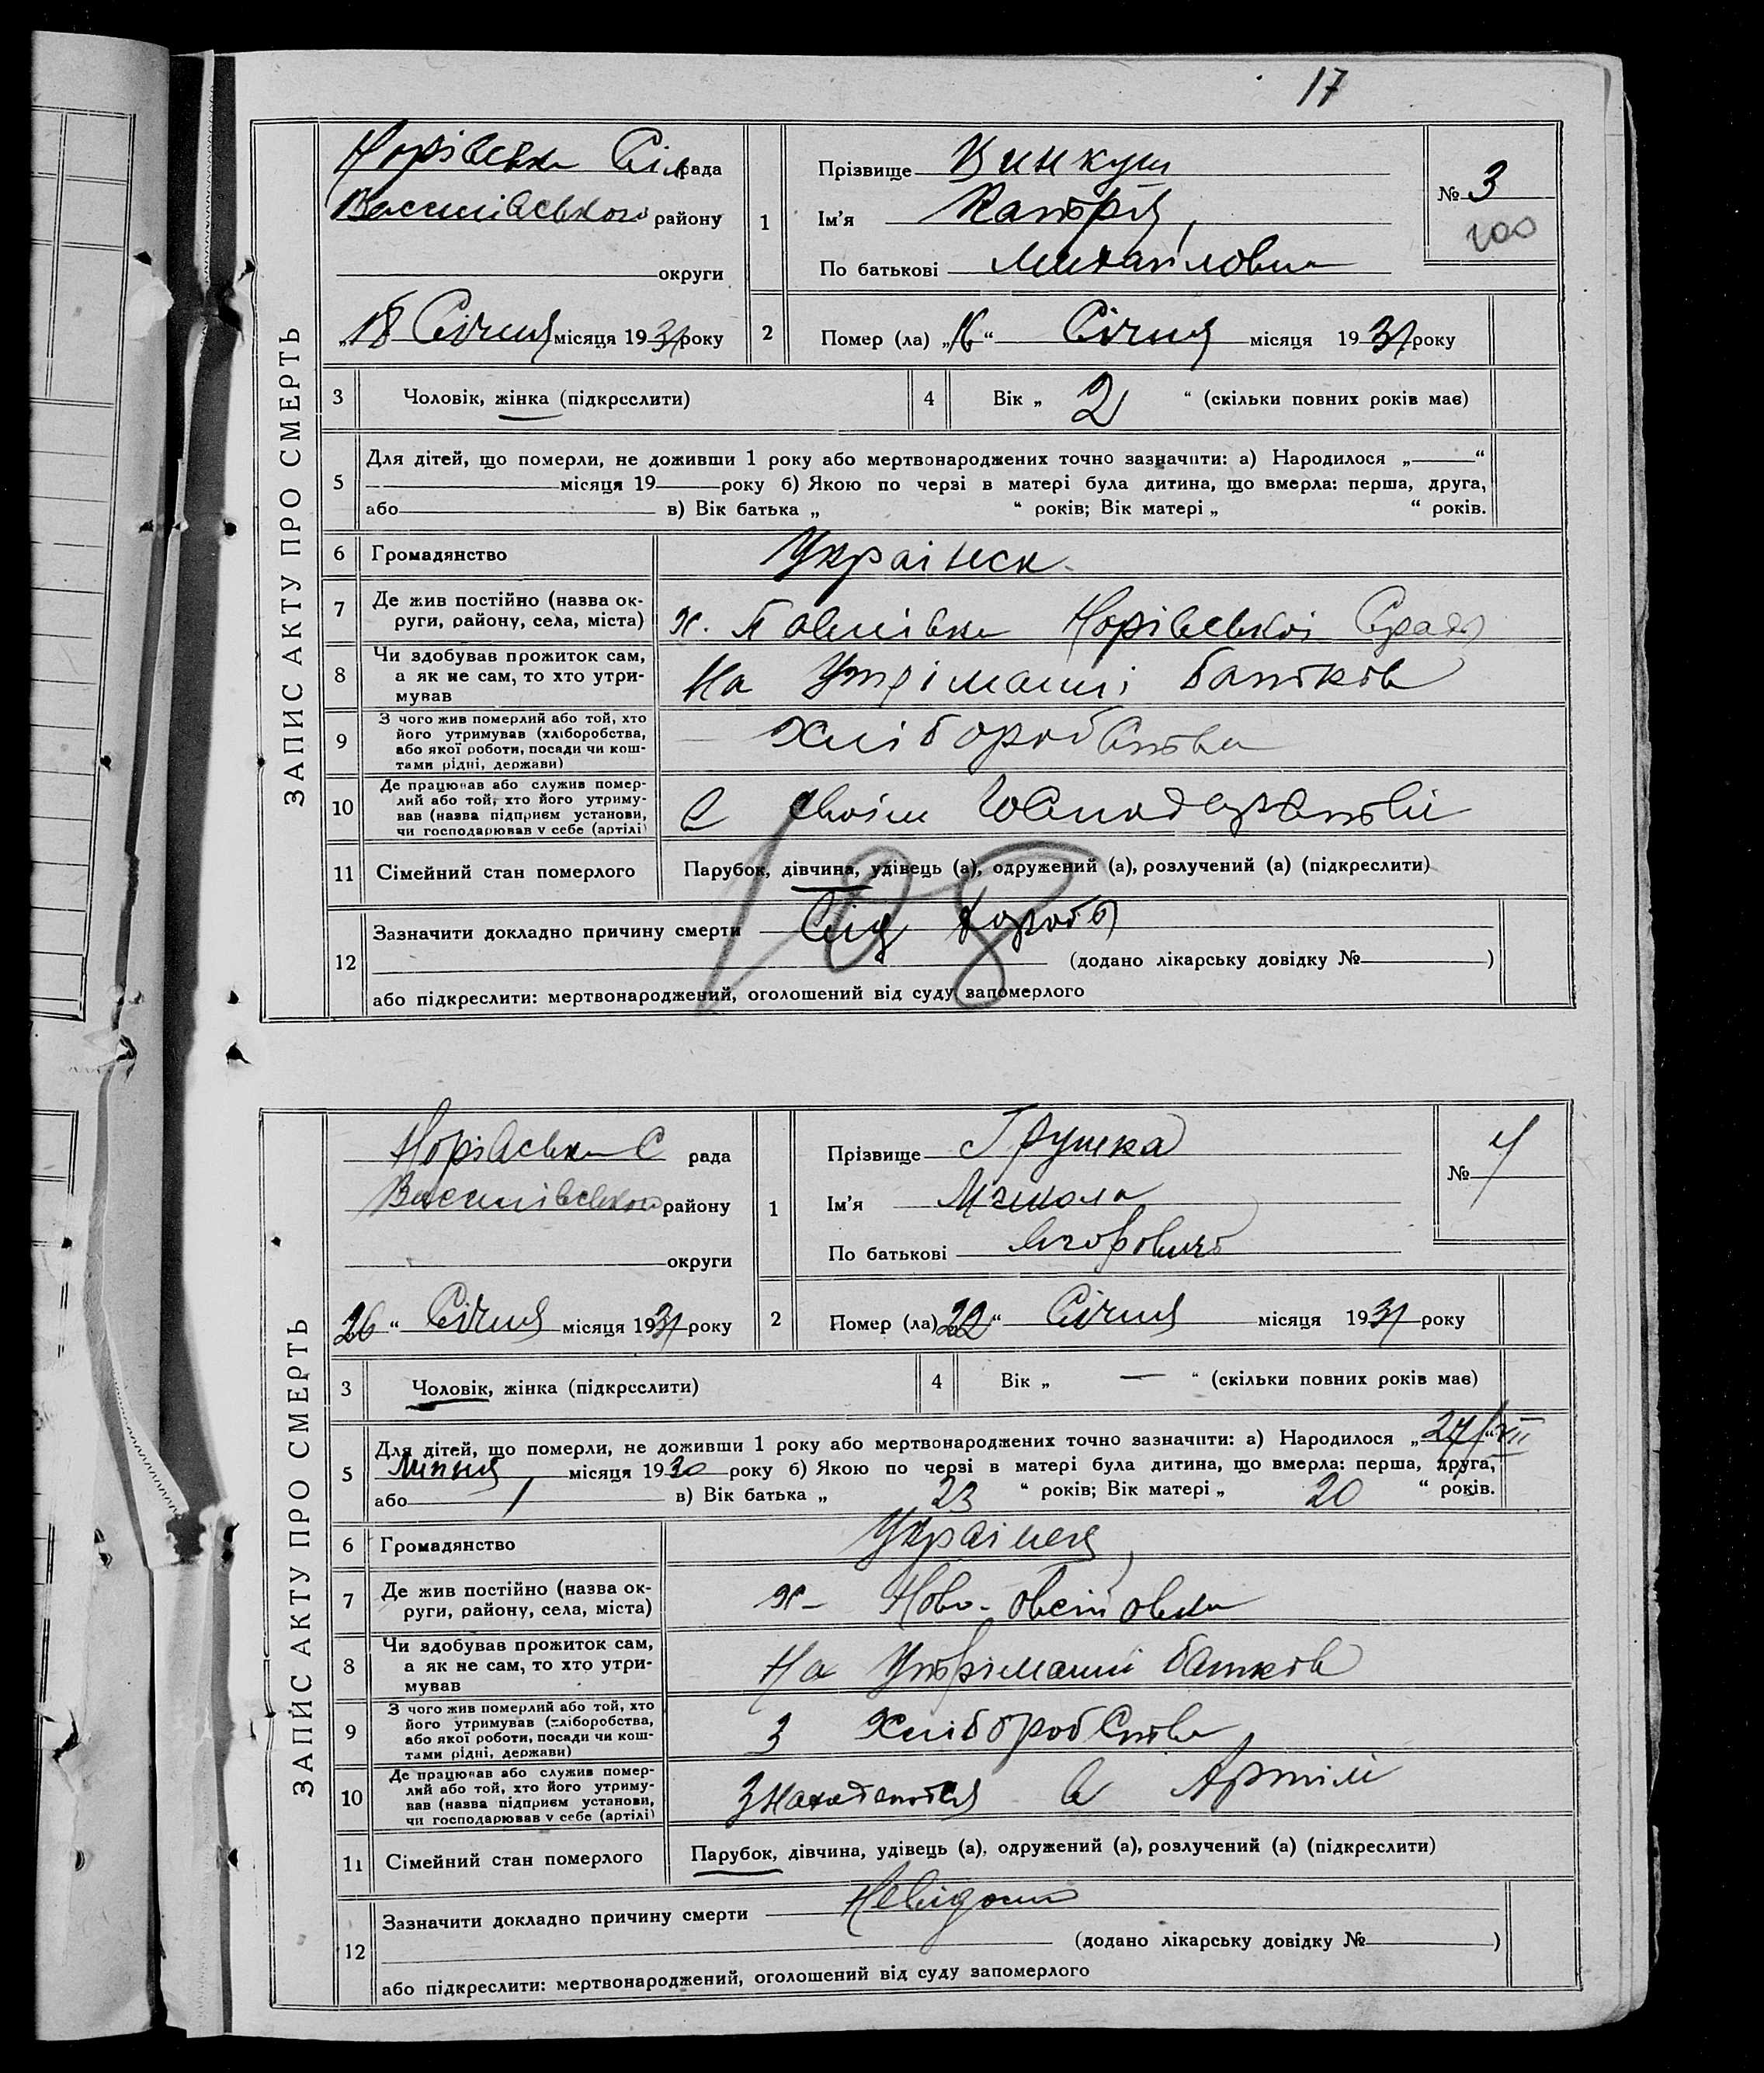 17
ЗАПИС АКТУ ПРО СМЕРТЬ
рада
району
округи
„18 Січня місяця 1931 року
1
Прізвище
Ім'я
По батькові Михайловна
№ 3
2
Помер (ла) „16“ Січня місяця 1931 року
3
Чоловік, жінка (підкреслити)
4
Вік „ 2 “ (скільки повних років має)
5
Для дітей, що померли, не доживши 1 року або мертвонароджених точно зазначити: а) Народилося „ “
місяця 19 року б) Якою по черзі в матері була дитина, що вмерла: перша, друга,
або в) Вік батька „ “ років; Вік матері „ “ років.
6
Громадянство
Українск
7
Де жив постійно (назва ок-
руги, району, села, міста)
х. Павлівка
8
Чи здобував прожиток сам,
а як не сам, то хто утри-
мував
На Утріманні батьків
9
З чого жив померлий або той, хто
його утримував (хліборобства,
або якої роботи, посади чи кош-
тами рідні, держави)
Хліборобства
10
Де працював або служив помер-
лий або той, хто його утриму-
вав (назва підприєм установи,
чи господарював у себе (артілі)
В своїм
11
Сімейний стан померлого
Парубок, дівчина, удівець (а), одружений (а), розлучений (а) (підкреслити)
188
12
Зазначити докладно причину смерти
(додано лікарську довідку № )
або підкреслити: мертвонароджений, оголошений від суду запомерлого
ЗАПИС АКТУ ПРО СМЕРТЬ
рада
району
округи
26“ Січня місяця 1931 року
1
Прізвище Грушка
Ім'я Микола
По батькові Ягоровичь
№ 4
2
Помер (ла) 22“ Січня місяця 1931 року
3
Чоловік, жінка (підкреслити)
4
Вік „ — “ (скільки повних років має)
5
Для дітей, що померли, не доживши 1 року або мертвонароджених точно зазначити: а) Народилося „27/VII
Липня місяця 1930 року б) Якою по черзі в матері була дитина, що вмерла: перша, друга,
або 1 в) Вік батька „ 23 “ років; Вік матері „ 20 “ років.
6
Громадянство
Українец
7
Де жив постійно (назва ок-
руги, району, села, міста)
х-
8
Чи здобував прожиток сам,
а як не сам, то хто утри-
мував
На Утріманні батьків
9
З чого жив померлий або той, хто
його утримував (хліборобства,
або якої роботи, посади чи кош-
тами рідні, держави)
З Хліборобства
10
Де працював або служив помер-
лий або той, хто його утриму-
вав (назва підприєм установи,
чи господарював у себе (артілі)
Знаходеться в Артілі
11
Сімейний стан померлого
Парубок, дівчина, удівець (а), одружений (а), розлучений (а) (підкреслити)
12
Зазначити докладно причину смерти Невідома
(додано лікарську довідку № )
або підкреслити: мертвонароджений, оголошений від суду запомерлого